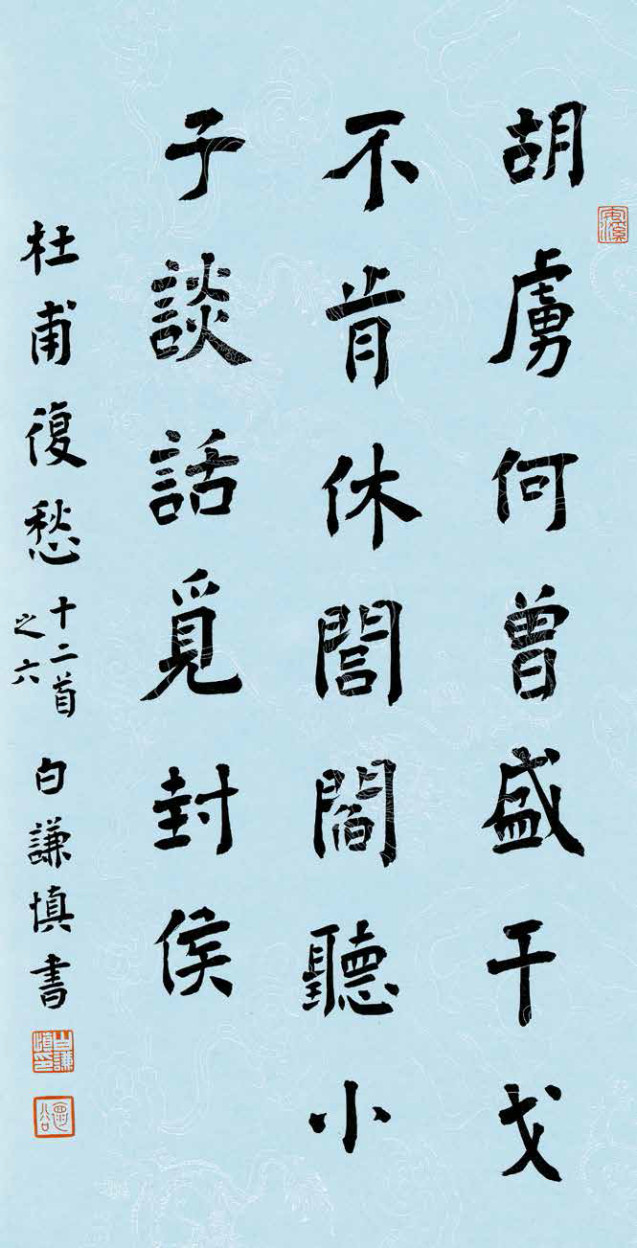 胡虜何曾盛干戈
不肯休閭閻聽小
子談話覓封侯
杜甫復愁十二首之六 白謙慎書
白謙慎印